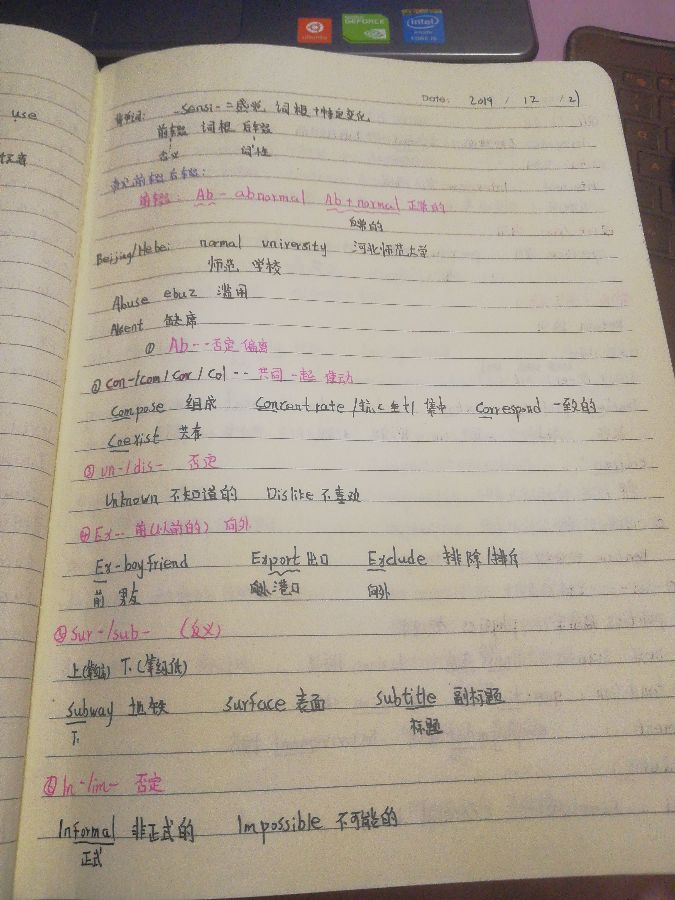 ubuntu
GEFORCE
intel
use
Date: 2019 / 12 / 21
背单词: -sensi- = 感觉 词根+特定变化
前缀 词根 后缀
含义 词性
常见前缀后缀:
前缀: Ab- abnormal Ab+normal 正常的
反常的
Beijing/Hebei: normal university 河北师范大学
师范 学校
Abuse ebuz 滥用
Absent 缺席
① Ab--否定 偏离
② con-/com/cor/col-- 共同 一起 使动
Compose 组成 Concentrate 集中 Correspond 一致的
Coexist 共存
③ un-/dis- 否定
Unknown 不知道的 Dislike 不喜欢
④ Ex-- 前(以前的) 向外
Ex-boyfriend Export 出口 Exclude 排除/排斥
前 男友 向外 港口 向外
⑤ sur-/sub- (反义)
上(等级高) 下(等级低)
subway 地铁 surface 表面 subtitle 副标题
下 标题
⑥ In-/im- 否定
Informal 非正式的 Impossible 不可能的
正式